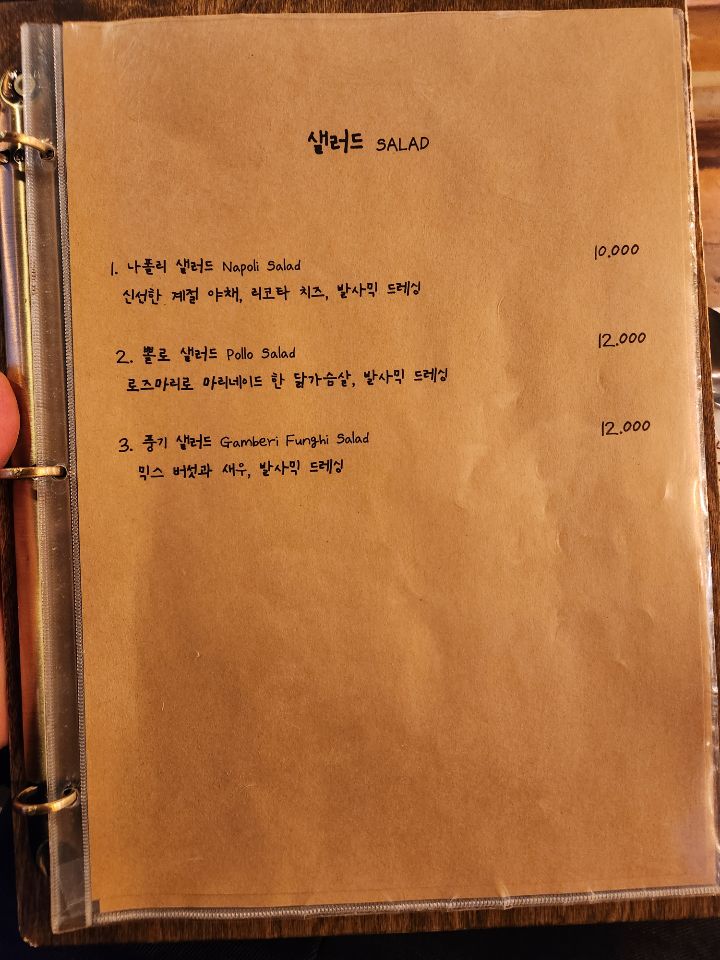 샐러드 SALAD
1. 나폴리 샐러드 Napoli Salad 10.000
신선한 계절 야채, 리코타 치즈, 발사믹 드레싱
2. 뽈로 샐러드 Pollo Salad 12.000
로즈마리로 마리네이드 한 닭가슴살, 발사믹 드레싱
3. 풍기 샐러드 Gamberi Funghi Salad 12.000
믹스 버섯과 새우, 발사믹 드레싱